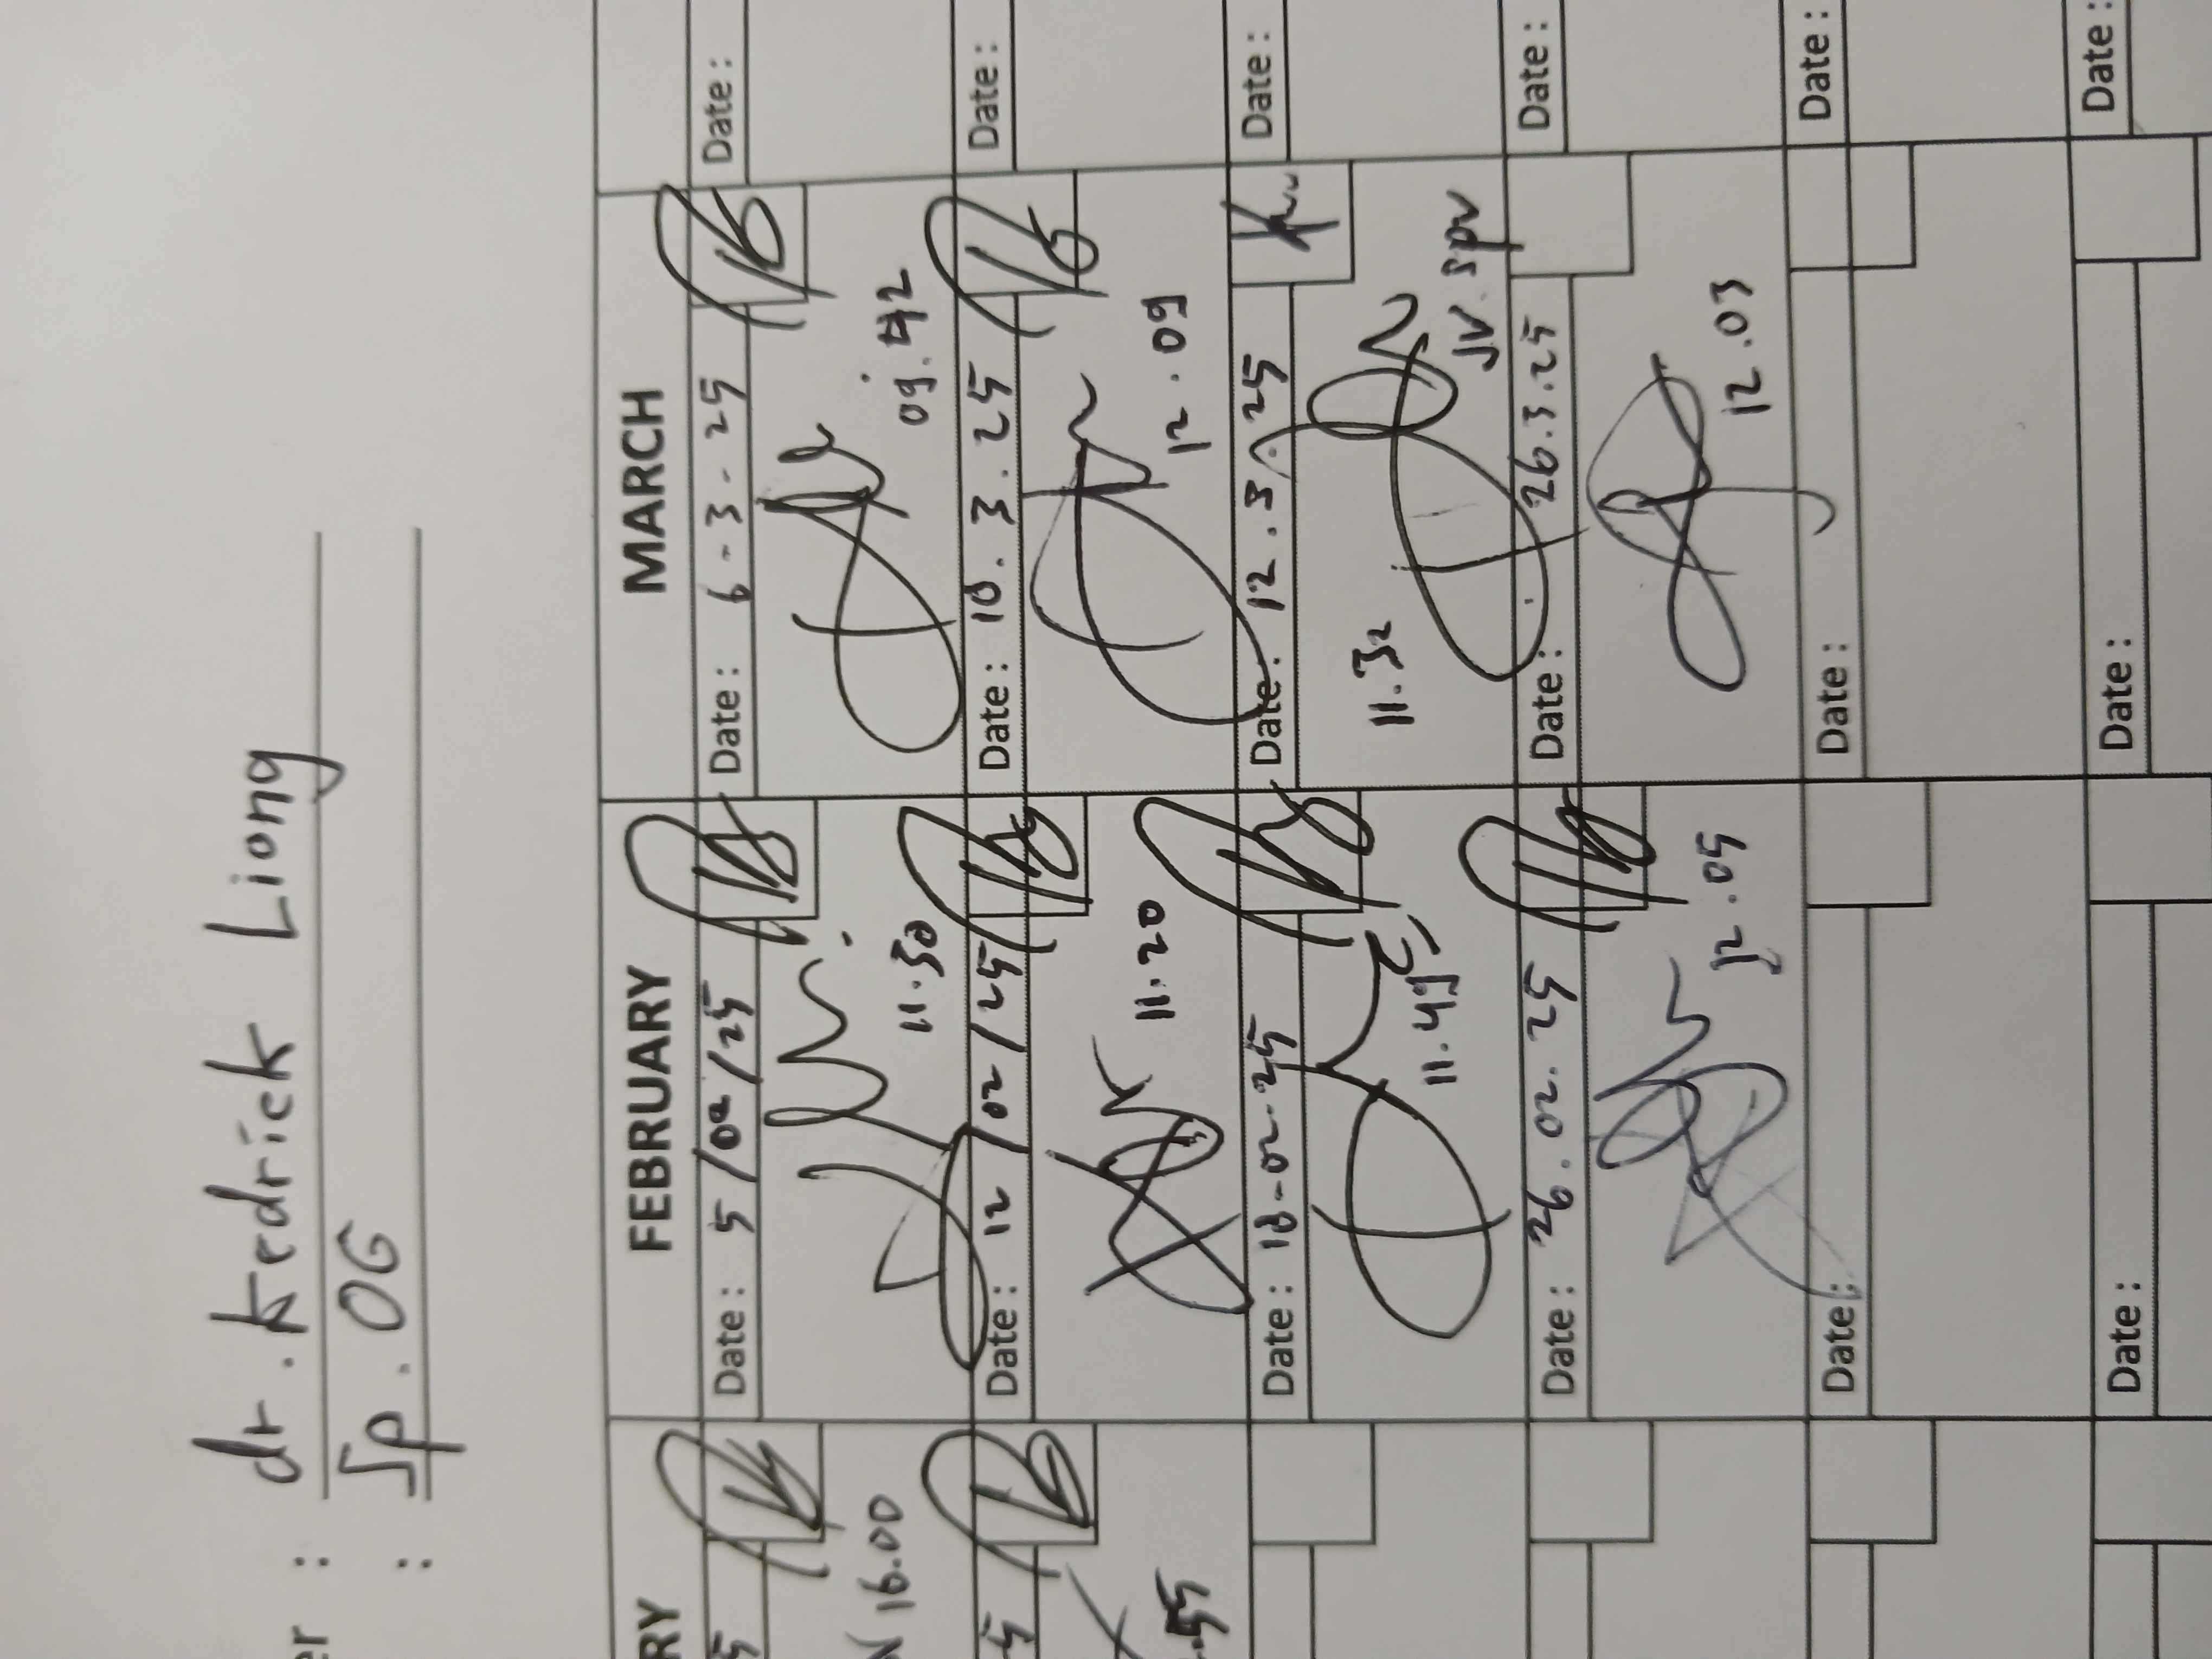 er : dr. Kedrick Liong
: Sp. OG
RY FEBRUARY MARCH
5 Date : 5/02/25 Date : 6-3-25 Date :
16.00 11.50 09.42
5 Date : 12/02/25 Date : 10.3.25 Date :
.55 11.20 12.09
Date : 18-02-25 Date : 12.3.25 Date :
11.45 11.32 JV. spv
Date : 26.02.25 Date : 26.3.25 Date :
12.05 12.03
Date : Date : Date :
Date : Date : Date :